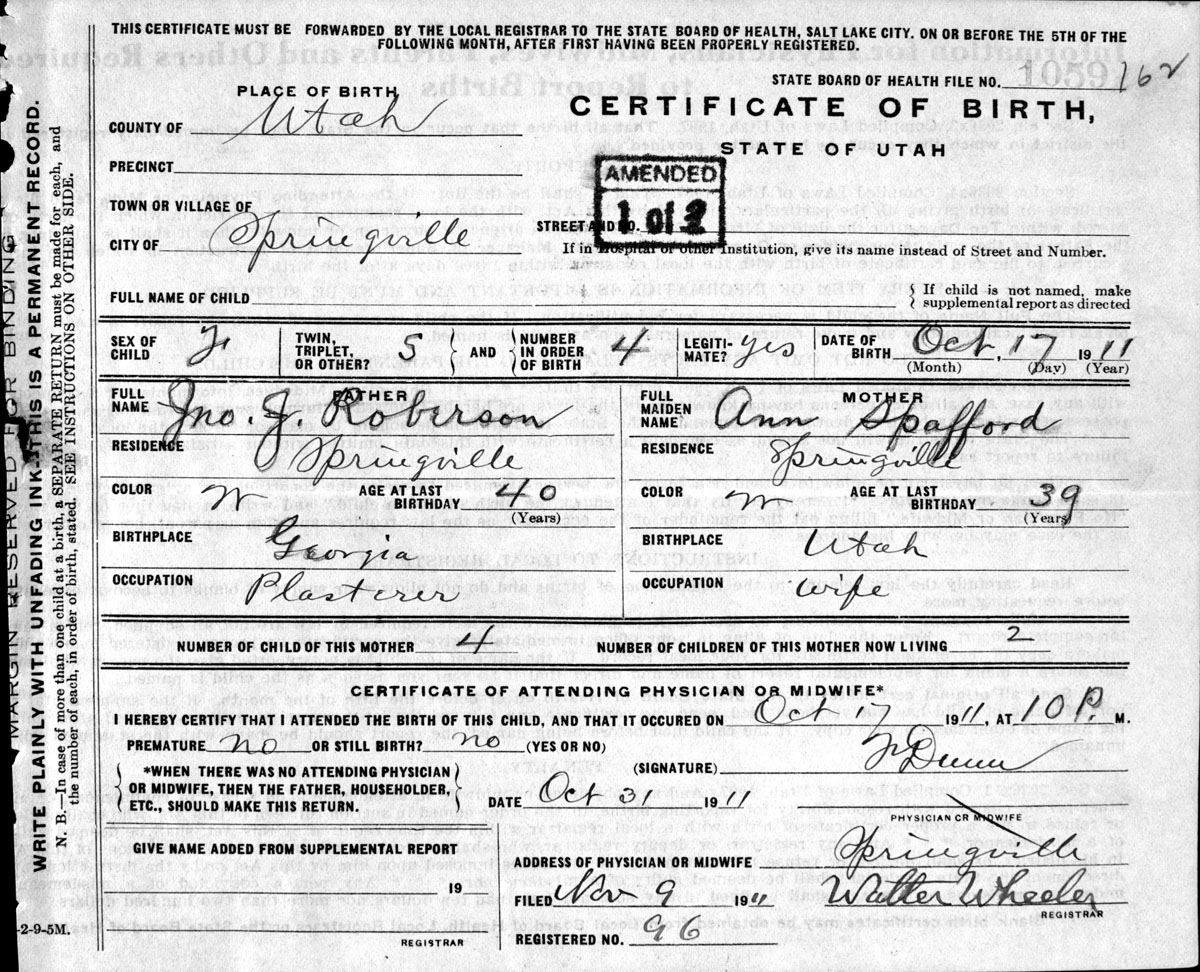 THIS CERTIFICATE MUST BE FORWARDED BY THE LOCAL REGISTRAR TO THE STATE BOARD OF HEALTH, SALT LAKE CITY. ON OR BEFORE THE 5TH OF THE
FOLLOWING MONTH, AFTER FIRST HAVING BEEN PROPERLY REGISTERED.
STATE BOARD OF HEALTH FILE NO. 1059 162
PLACE OF BIRTH,
CERTIFICATE OF BIRTH,
COUNTY OF Utah
STATE OF UTAH
PRECINCT
AMENDED
1 of 2
TOWN OR VILLAGE OF
STREET AND NO.
CITY OF Springville
If in Hospital or other Institution, give its name instead of Street and Number.
FULL NAME OF CHILD
{ If child is not named, make
supplemental report as directed
SEX OF CHILD F TWIN, TRIPLET, OR OTHER? S AND NUMBER IN ORDER OF BIRTH 4 LEGITI-MATE? yes DATE OF BIRTH Oct, 17 1911
(Month) (Day) (Year)
FATHER MOTHER
FULL NAME Jno. J. Roberson FULL MAIDEN NAME Ann Spafford
RESIDENCE Springville RESIDENCE Springville
COLOR W AGE AT LAST BIRTHDAY 40 COLOR W AGE AT LAST BIRTHDAY 39
(Years) (Years)
BIRTHPLACE Georgia BIRTHPLACE Utah
OCCUPATION Plasterer OCCUPATION wife
NUMBER OF CHILD OF THIS MOTHER 4 NUMBER OF CHILDREN OF THIS MOTHER NOW LIVING 2
CERTIFICATE OF ATTENDING PHYSICIAN OR MIDWIFE*
I HEREBY CERTIFY THAT I ATTENDED THE BIRTH OF THIS CHILD, AND THAT IT OCCURED ON Oct 17 1911, AT 10 P. M.
PREMATURE no OR STILL BIRTH? no (YES OR NO)
(SIGNATURE) F Dunn
{ *WHEN THERE WAS NO ATTENDING PHYSICIAN
OR MIDWIFE, THEN THE FATHER, HOUSEHOLDER,
ETC., SHOULD MAKE THIS RETURN. }
DATE Oct 3 1911
PHYSICIAN OR MIDWIFE
GIVE NAME ADDED FROM SUPPLEMENTAL REPORT
ADDRESS OF PHYSICIAN OR MIDWIFE Springville
19
FILED Nov 9 1911 Walter Wheeler
REGISTRAR
REGISTERED NO. 96
REGISTRAR
-2-9-5M.
MARGIN RESERVED FOR BINDING
WRITE PLAINLY WITH UNFADING INK-THIS IS A PERMANENT RECORD.
N. B.—In case of more than one child at a birth, a SEPARATE RETURN must be made for each, and
the number of each, in order of birth, stated. SEE INSTRUCTIONS ON OTHER SIDE.